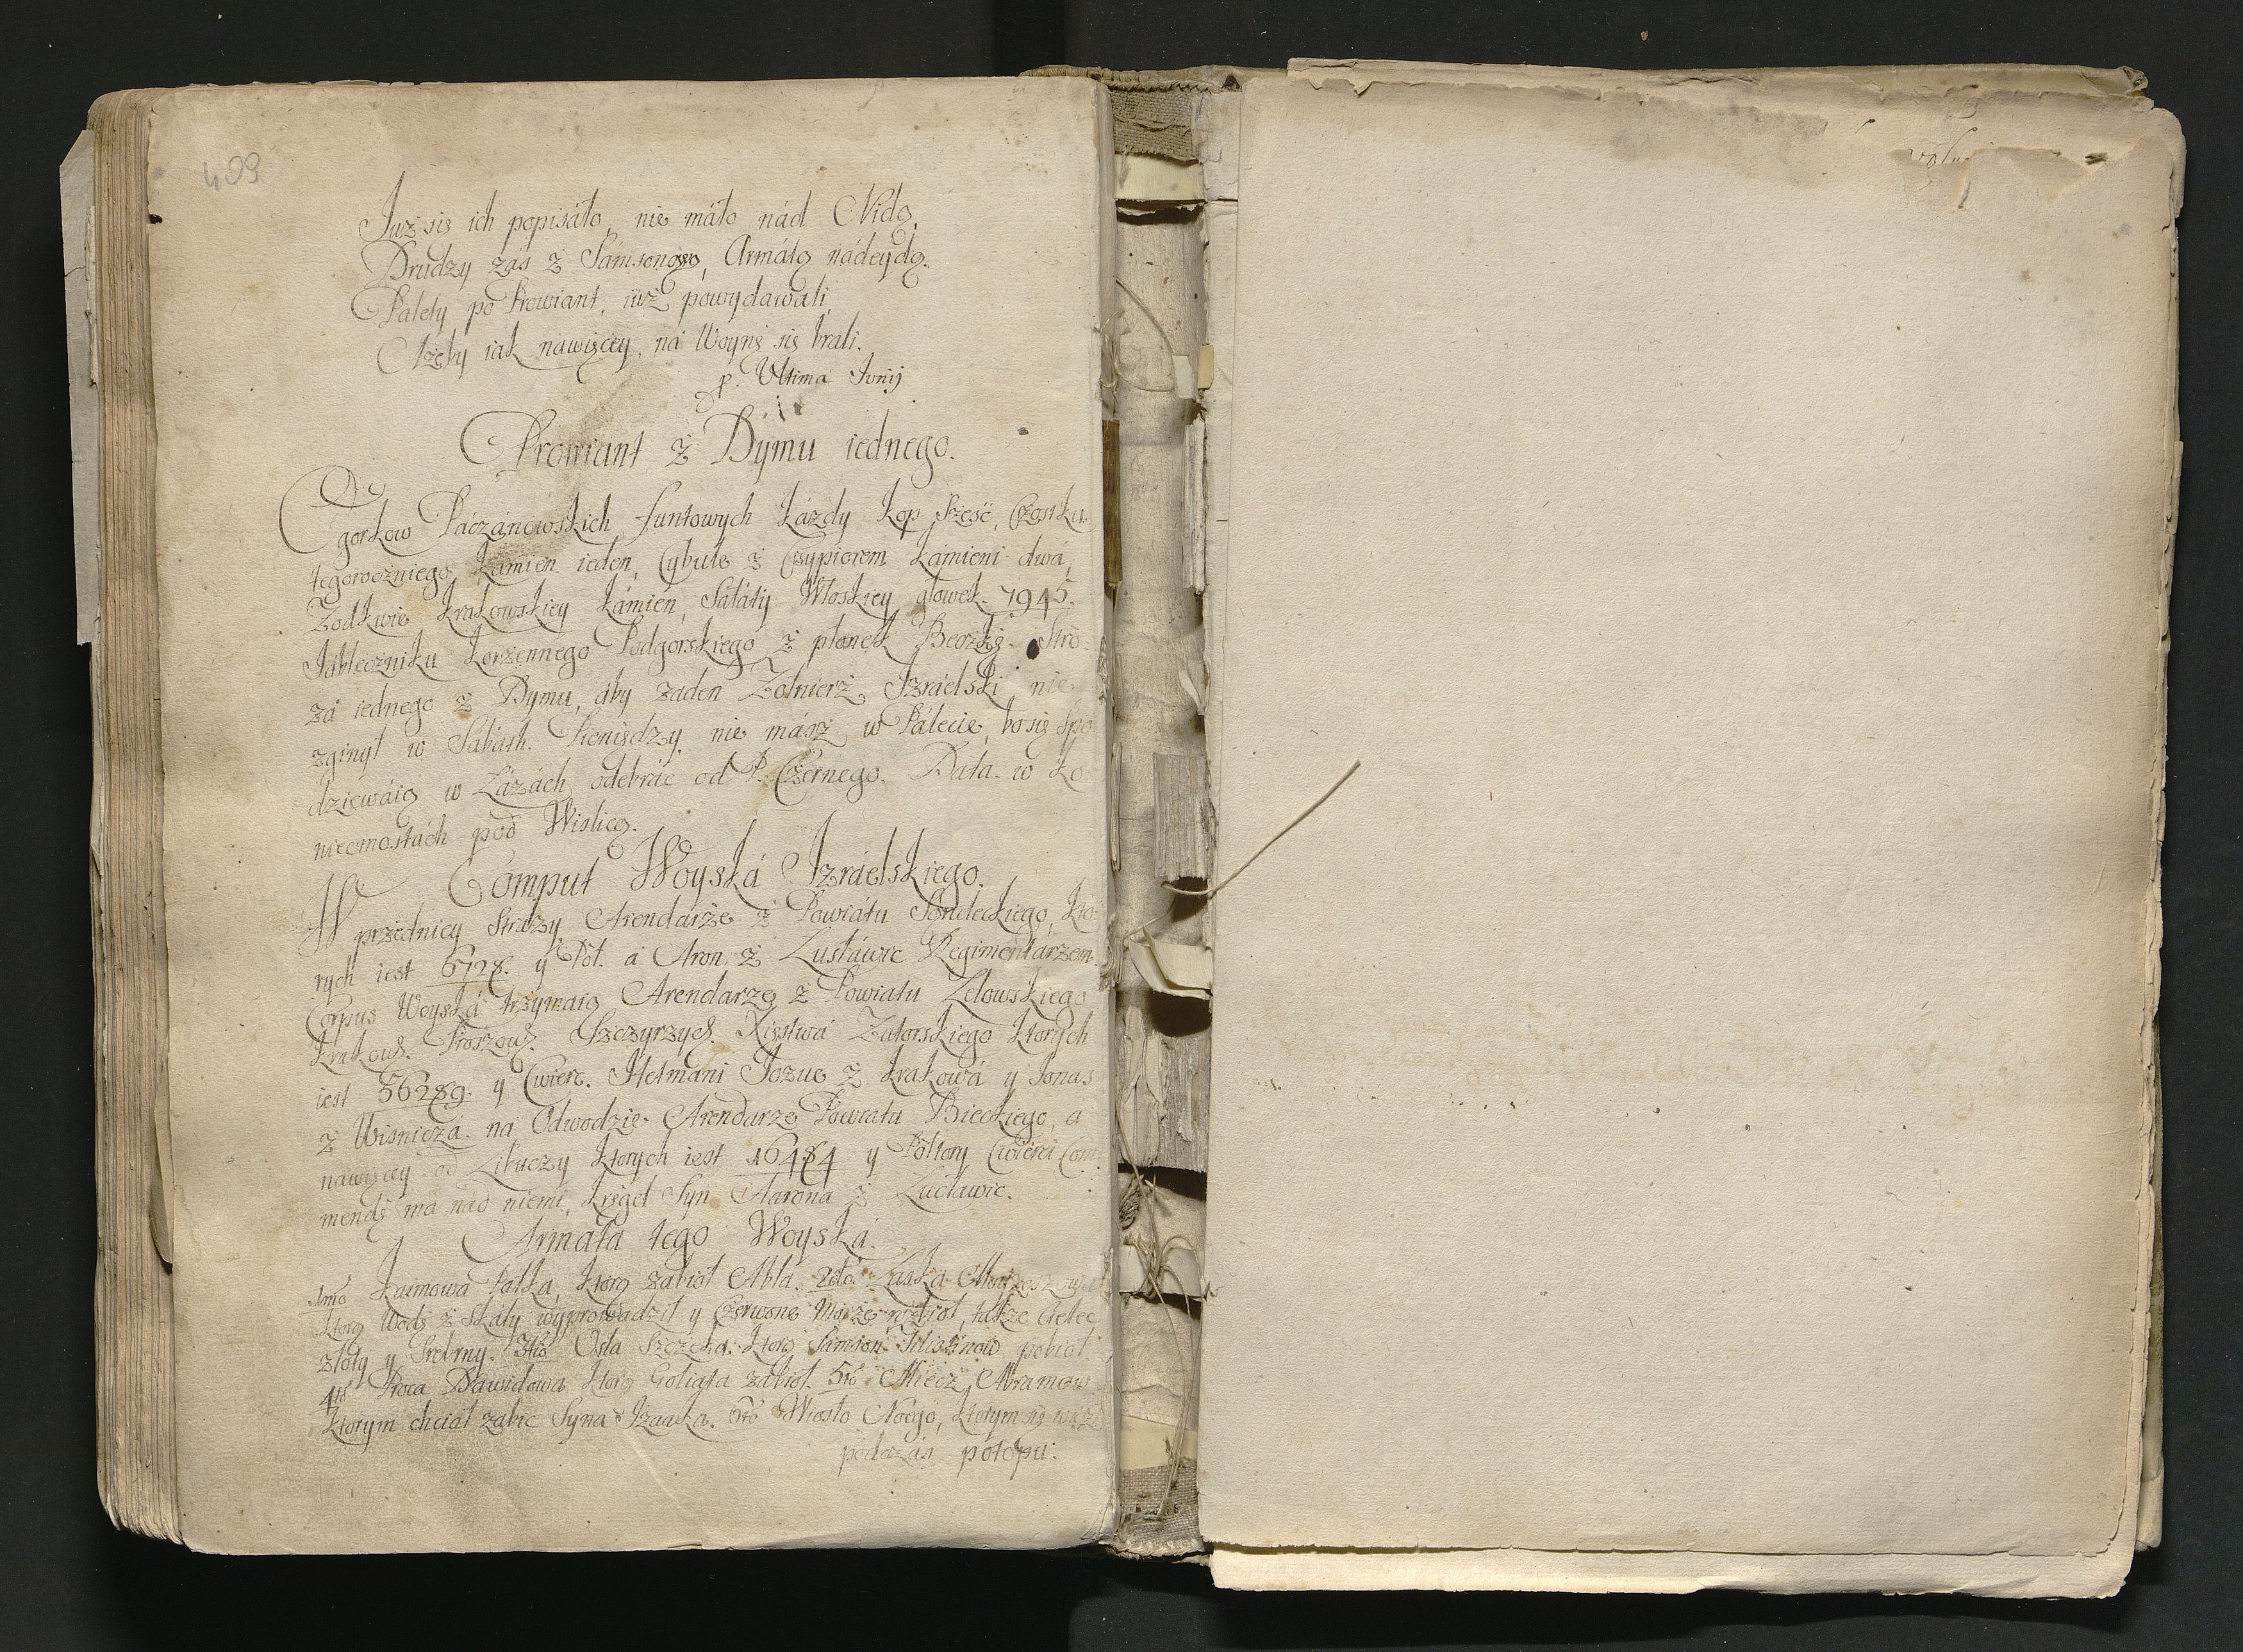 409
Juz się ich popisáło, nie máło nád Nidą,
Drudzy zás z Sámsonową, Armátą nádeydą.
Palety po Prowiant, iuż powydawali,
Ażeby iak nawięcey, ná Woynę się brali.
p. Ultima Junij
Prowiant z Dymu iednego.
Ogorkow Páczánowskich funtowych każdy kop szesć, Czosnku
tegorocznego kámien ieden, Cybule z Czypiorem kámieni dwá,
Zodkwie krakowskiey kámien, Sáłáty Włoskiey głowek 7945.
Jábłeczniku korzennego Podgorskiego z płonek Beczkę. Stro
zá iednego z Dymu, áby zaden Zołnierz Jzráelski nie
zginął w Sábáth. Pieniędzy nie mász w Pálecie, bo się spo
dziewáią w Lázách odebráć od P. Czernego. Data w ko
niecmostách pod Wislicą.
Comput Woyská Jzráelskiego.
W przedniey Strazy Arendarze z Powiátu Sondeckiego, kto
rych iest 6728. y Poł. á Aron z Lusławic Regimentárzem.
Corpus Woyská trzymaią Arendarze z Powiatu Lelowskiego
krakows. Proszows. Szczyrzycs. Xięstwá Zatorskiego ktorych
iest 56289. y Cwierc. Hetmani Jozue z krakowá y Jonas
z Wisniczá. na Odwodzie Arendarze Powiatu Bieckiego, a
nawięcey od Libuczy ktorych iest 16484 y Połtory Cwierci Com
mendę ma nad niemi, Syn Aarona z Lucławic.
Armata tego Woyská.
1mo Kaimowa Pałka, ktorą zabioł Abla. 2do. Laska
ktorą Wodę z Skały wyprowadził y Czerwone Morze rozbioł, także Cielec
złoty y Srebrny. 3tio Osla Szczeka, ktorą Samson Filistinow pobioł.
4to Proca Dawidowa ktorą Goliata zabioł. 5to Miecz Abramow
ktorym chciał zabic Syna Izaaka. 6to Wiosło Noego, ktorym się
podczás potopu.